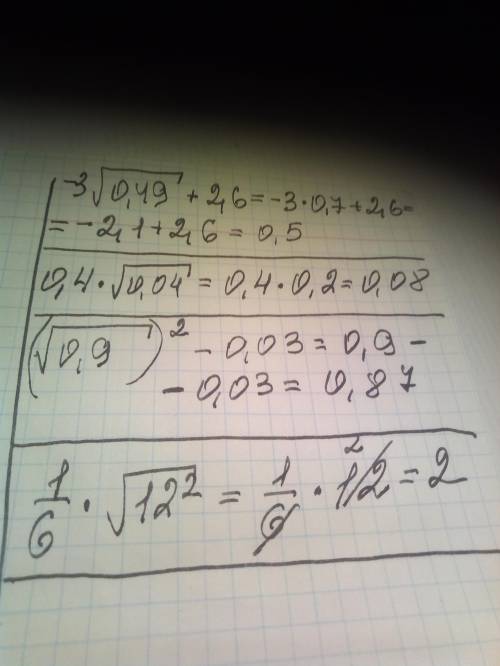 -3√0,49 + 2,6 = -3·0,7+2,6=
= -2,1+2,6 = 0,5
0,4·√0,04 = 0,4·0,2=0,08
(√0,9)² - 0,03 = 0,9 -
- 0,03 = 0,87
1/6 · √12² = 1/6 · 12 2 = 2